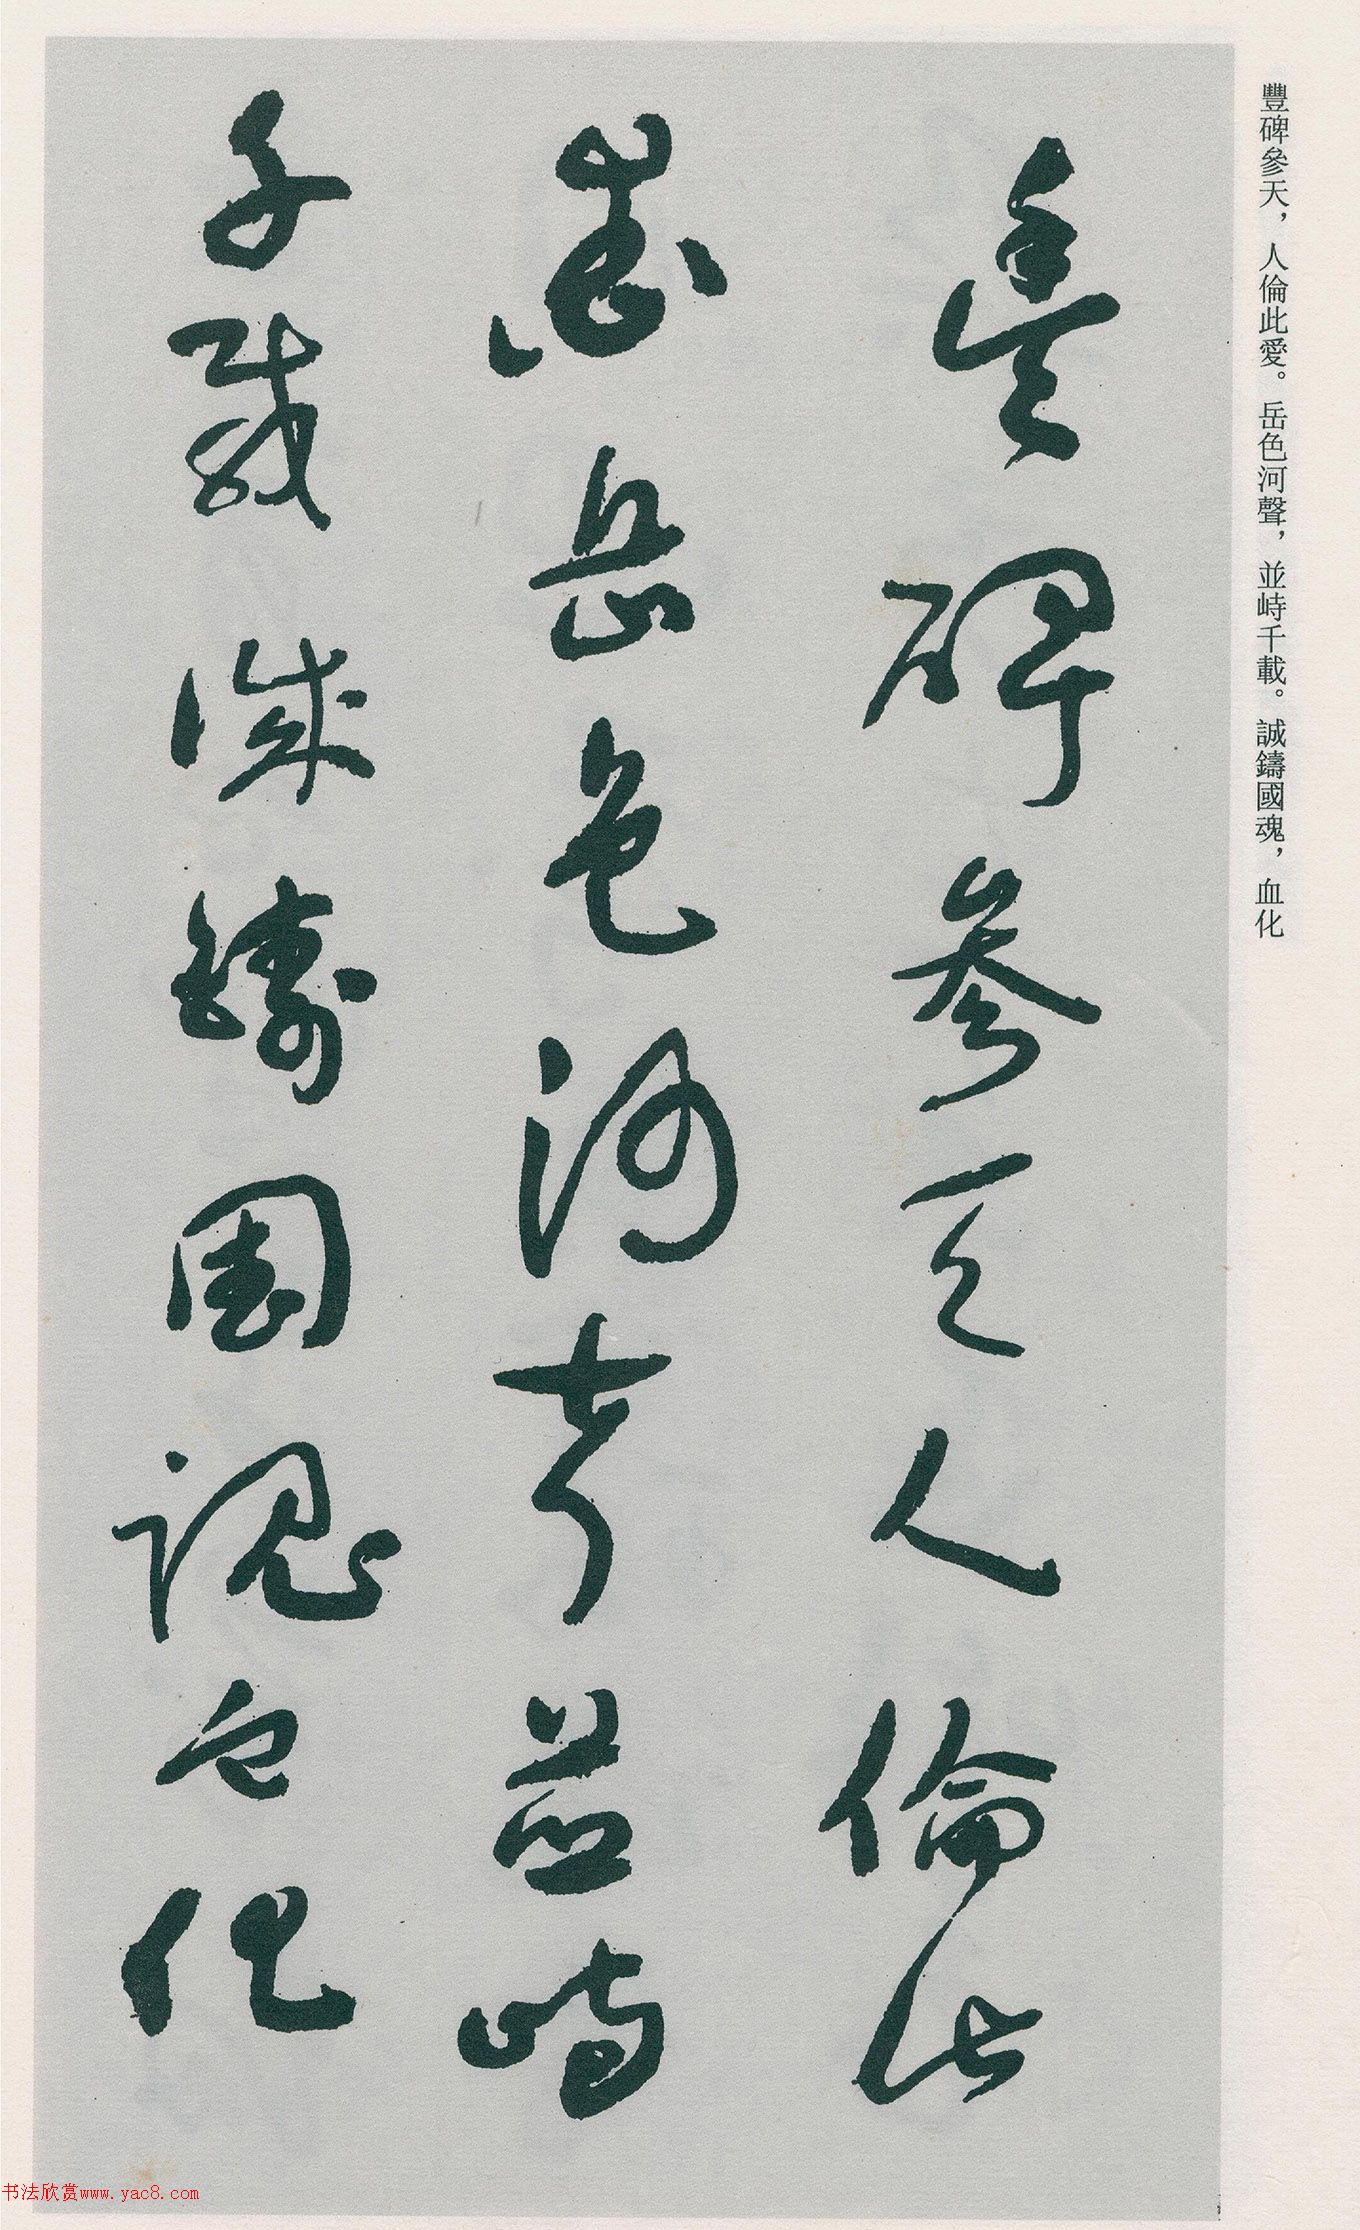 豐碑參天，人倫此愛。岳色河聲，並峙千載。誠鑄國魂，血化
豐碑參天人倫此
愛岳色河聲並峙
千載誠鑄國魂血化
书法欣赏www.yac8.com